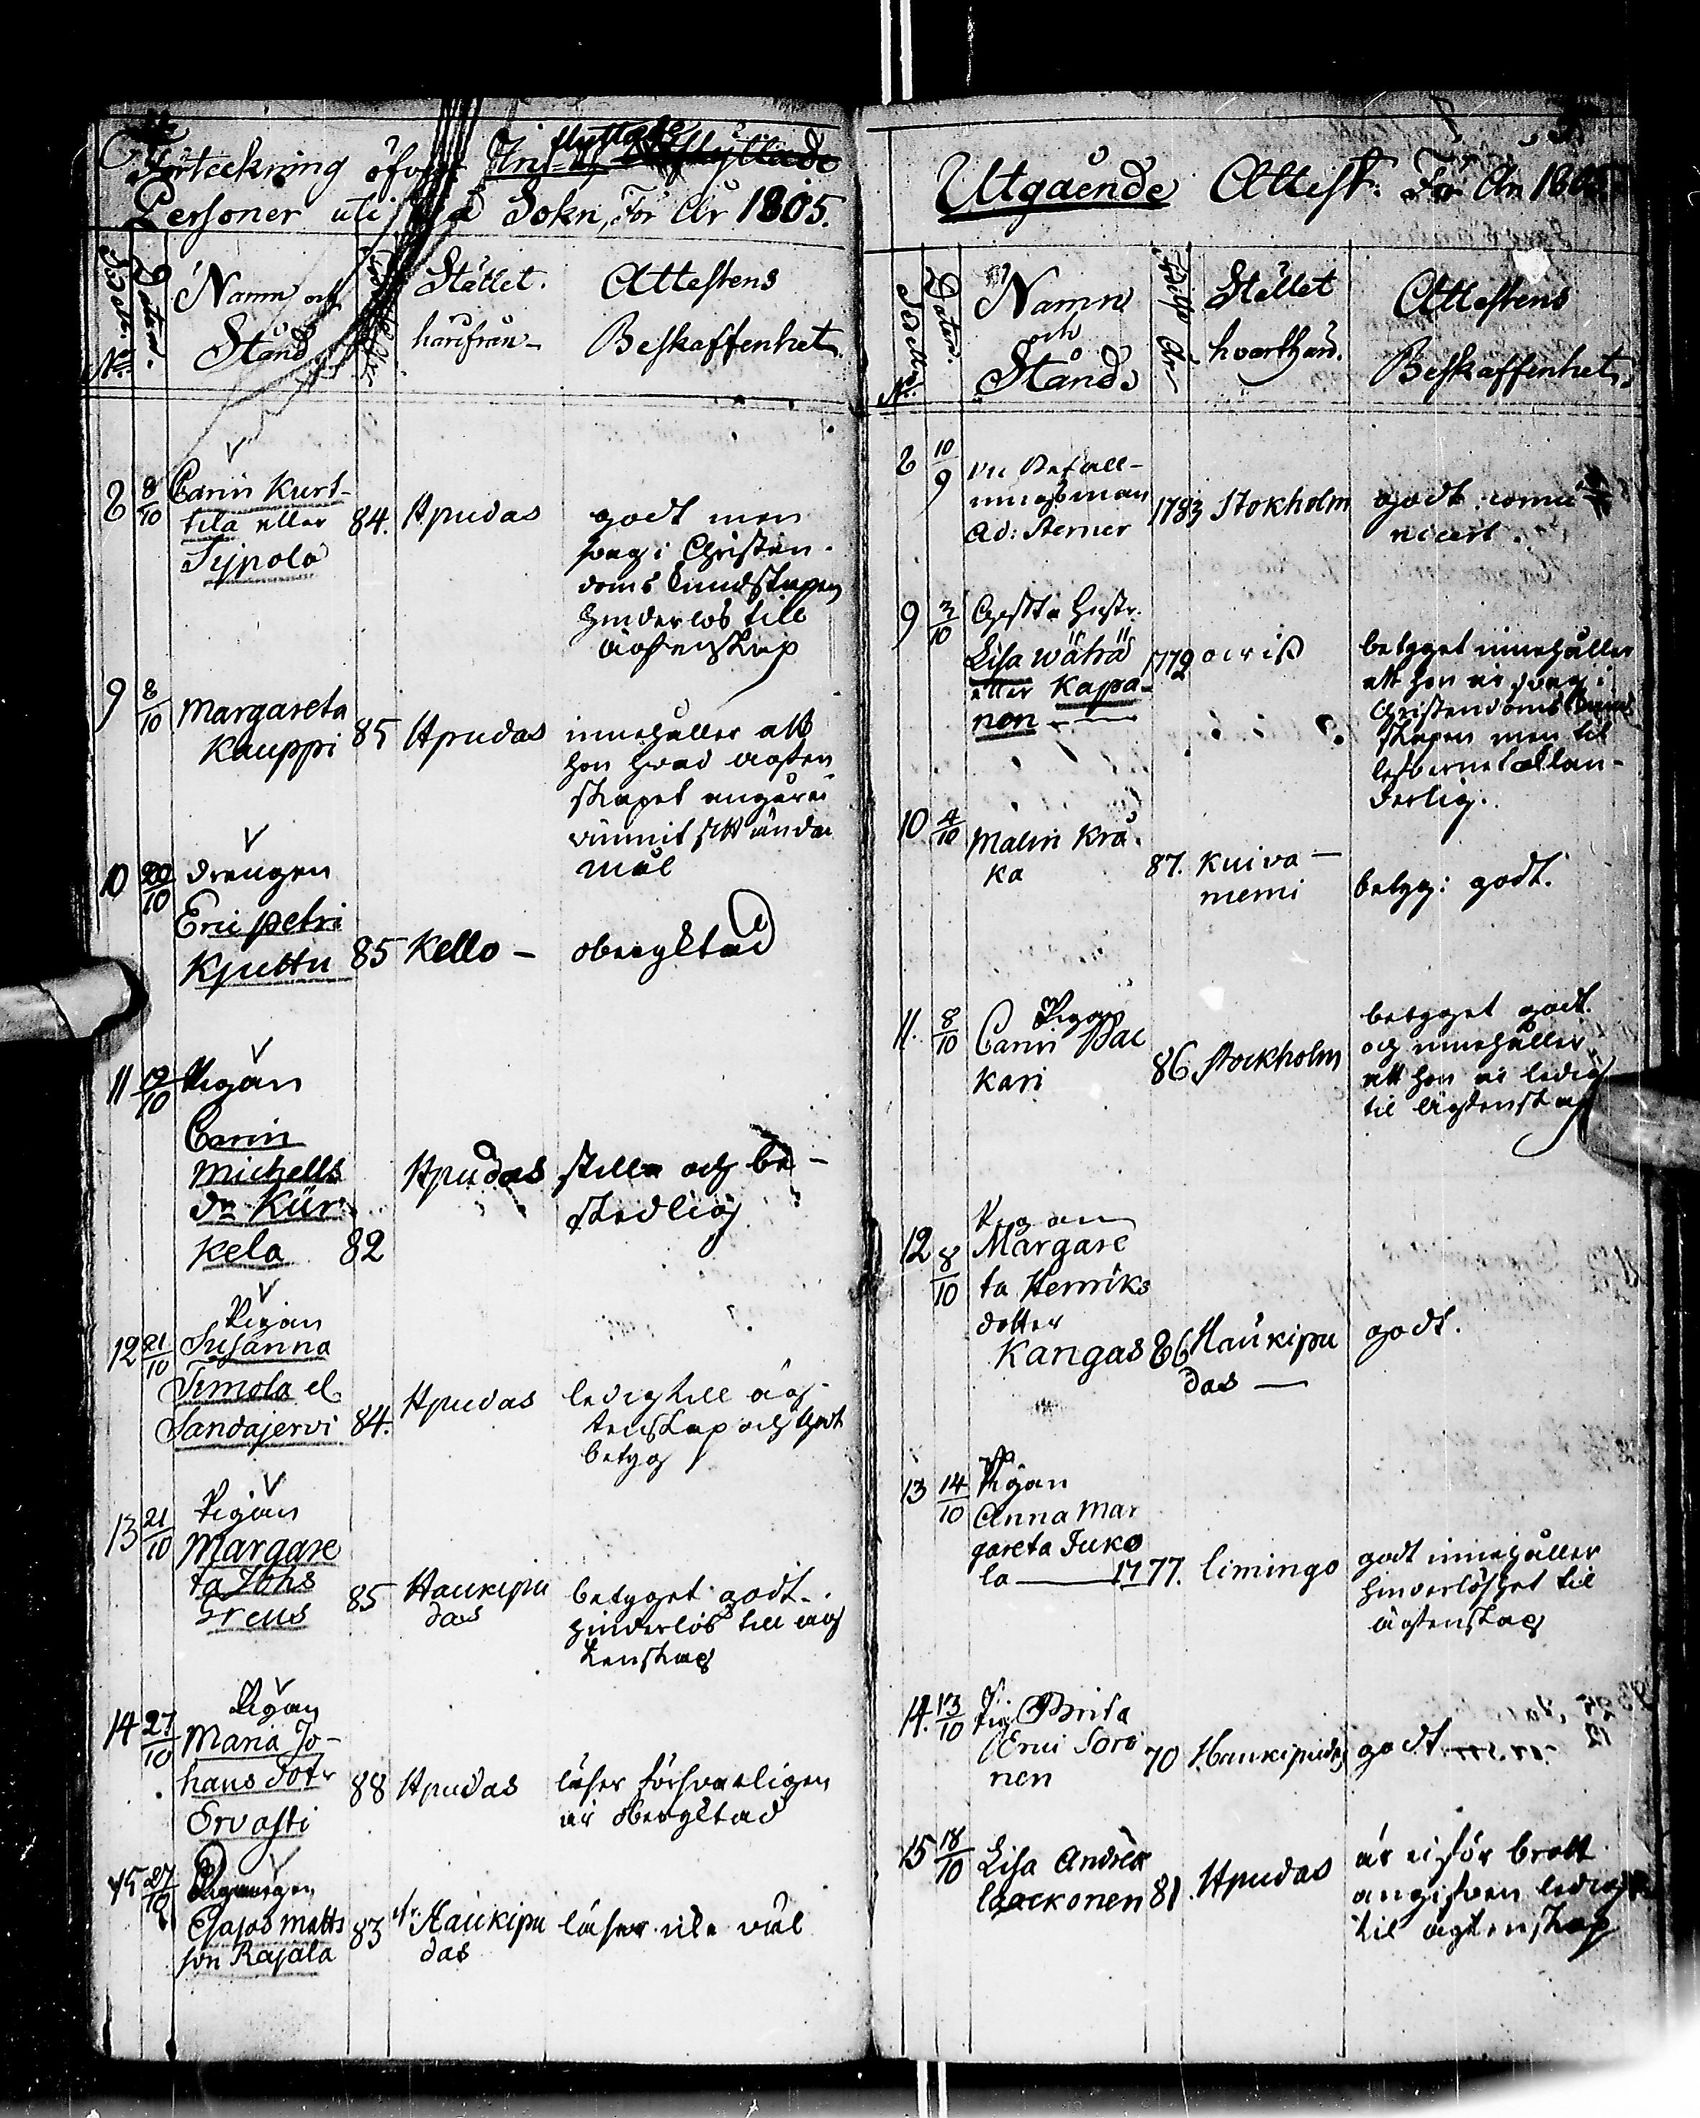 Förteckning öfver In- flyttade
Personer uti Sokn, För År 1805.
No
Datum.
Namn och
Stånd
Stället.
härifrån
Attestens
Beskaffenhet.
8 8/10 Carin Kurt-
tila eller
Sypola
84. Hpudas
godt men
svag i Christen-
doms kundskapen
hinderlös till
ägtenskap
9 8/10 Margareta
Kauppi
85 Hpudas
innehåller att
hon hvad ägten
skapet angår ei
vunnit sitt ända
mål
10 20/10 drengen
Eric petri
Kputtu
85 Kello -
obergktad
11 19/10 Pigan
Carin
Michells
dr Kür
kela 82
Hpudas
stilla och be-
skedlig
12 21/10 Pigan
Susanna
Timola el.
Sandajervi 84.
Hpudas
ledig till äg-
tenskap och godt
betyg
13 21/10 Pigan
Margare
ta Johs
Greus
85 Haukipu
das
betyget godt.
hinderlös till äg
tenskap
14 27/10 Pigan
Maria Jo-
hans dotr
Ervasti
88 Hpudas
läser försvarligen
är obergktad
15 27/10
Esaias Matts
son Rajala
83 Haukipu
das
läser illa väl
Utgående Attest. För År 1805
No
Datum.
Namn
och
Stånd
Födelse År
Stället
hvarthän.
Attestens
Beskaffenhet.
8 10/9 Befall-
ningsman
Ad: Sterner
1783 Stokholm
godt. comu
nicert.
9 3/10 Gifta hustr.
Lisa Wähä
eller Kapa-
nen
1779
betyget innehåller
att hon är svag i
Christendoms kund
skapen men til
lefvernet ostan-
derlig.
10 4/10 Malin Krå
ka
87. Kuiva-
niemi
betyg: godt.
11. 8/10 Pigan
Carin Pac
kari
86 Stockholm
betyget godt.
och innehåller
att hon är ledig
til ägtenskap
12 8/10 Pigan
Margare
ta Henriks
dotter
Kangas 86
Haukipu
das —
godt.
13 14/10 Pigan
Anna Mar
gareta Juko
la — 1777.
Limingo
godt innehåller
hinderlöshet til
ägtenskap
14. 13/10 Pig. Brita
Erici Soro
nen
70 Haukipudas
godt
15 18/10 Lisa Andrea
Laackonen 81
Hpudas
är ei för brott
angifven ledig
til ägtenskap